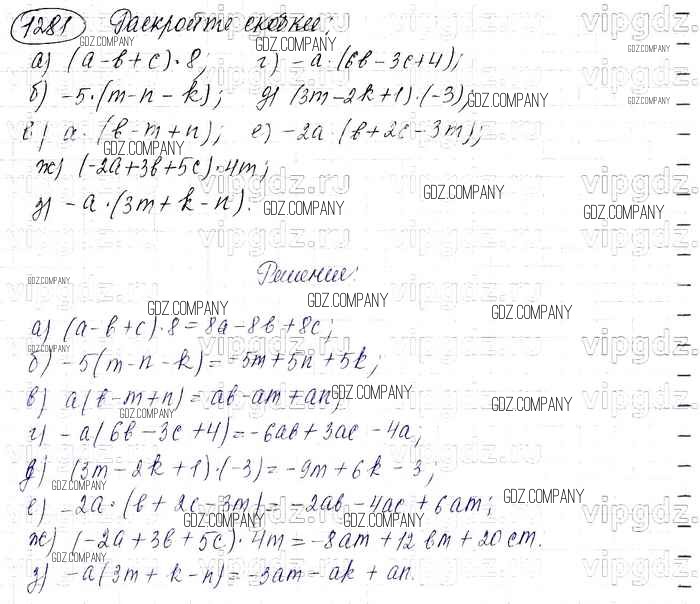 1281 Раскройте скобки:
а) (a-b+c)·8; г) -a·(6b-3c+4);
б) -5·(m-n-k); д) (3m-2k+1)·(-3);
в) a·(b-m+n); е) -2a·(b+2c-3m);
ж) (-2a+3b+5c)·4m;
з) -a·(3m+k-n).
Решение:
а) (a-b+c)·8=8a-8b+8c;
б) -5(m-n-k)=-5m+5n+5k;
в) a(b-m+n)=ab-am+an;
г) -a(6b-3c+4)=-6ab+3ac-4a;
д) (3m-2k+1)·(-3)=-9m+6k-3;
е) -2a·(b+2c-3m)=-2ab-4ac+6am;
ж) (-2a+3b+5c)·4m=-8am+12bm+20cm.
з) -a(3m+k-n)=-3am-ak+an.
GDZ.COMPANY
vipgdz.ru